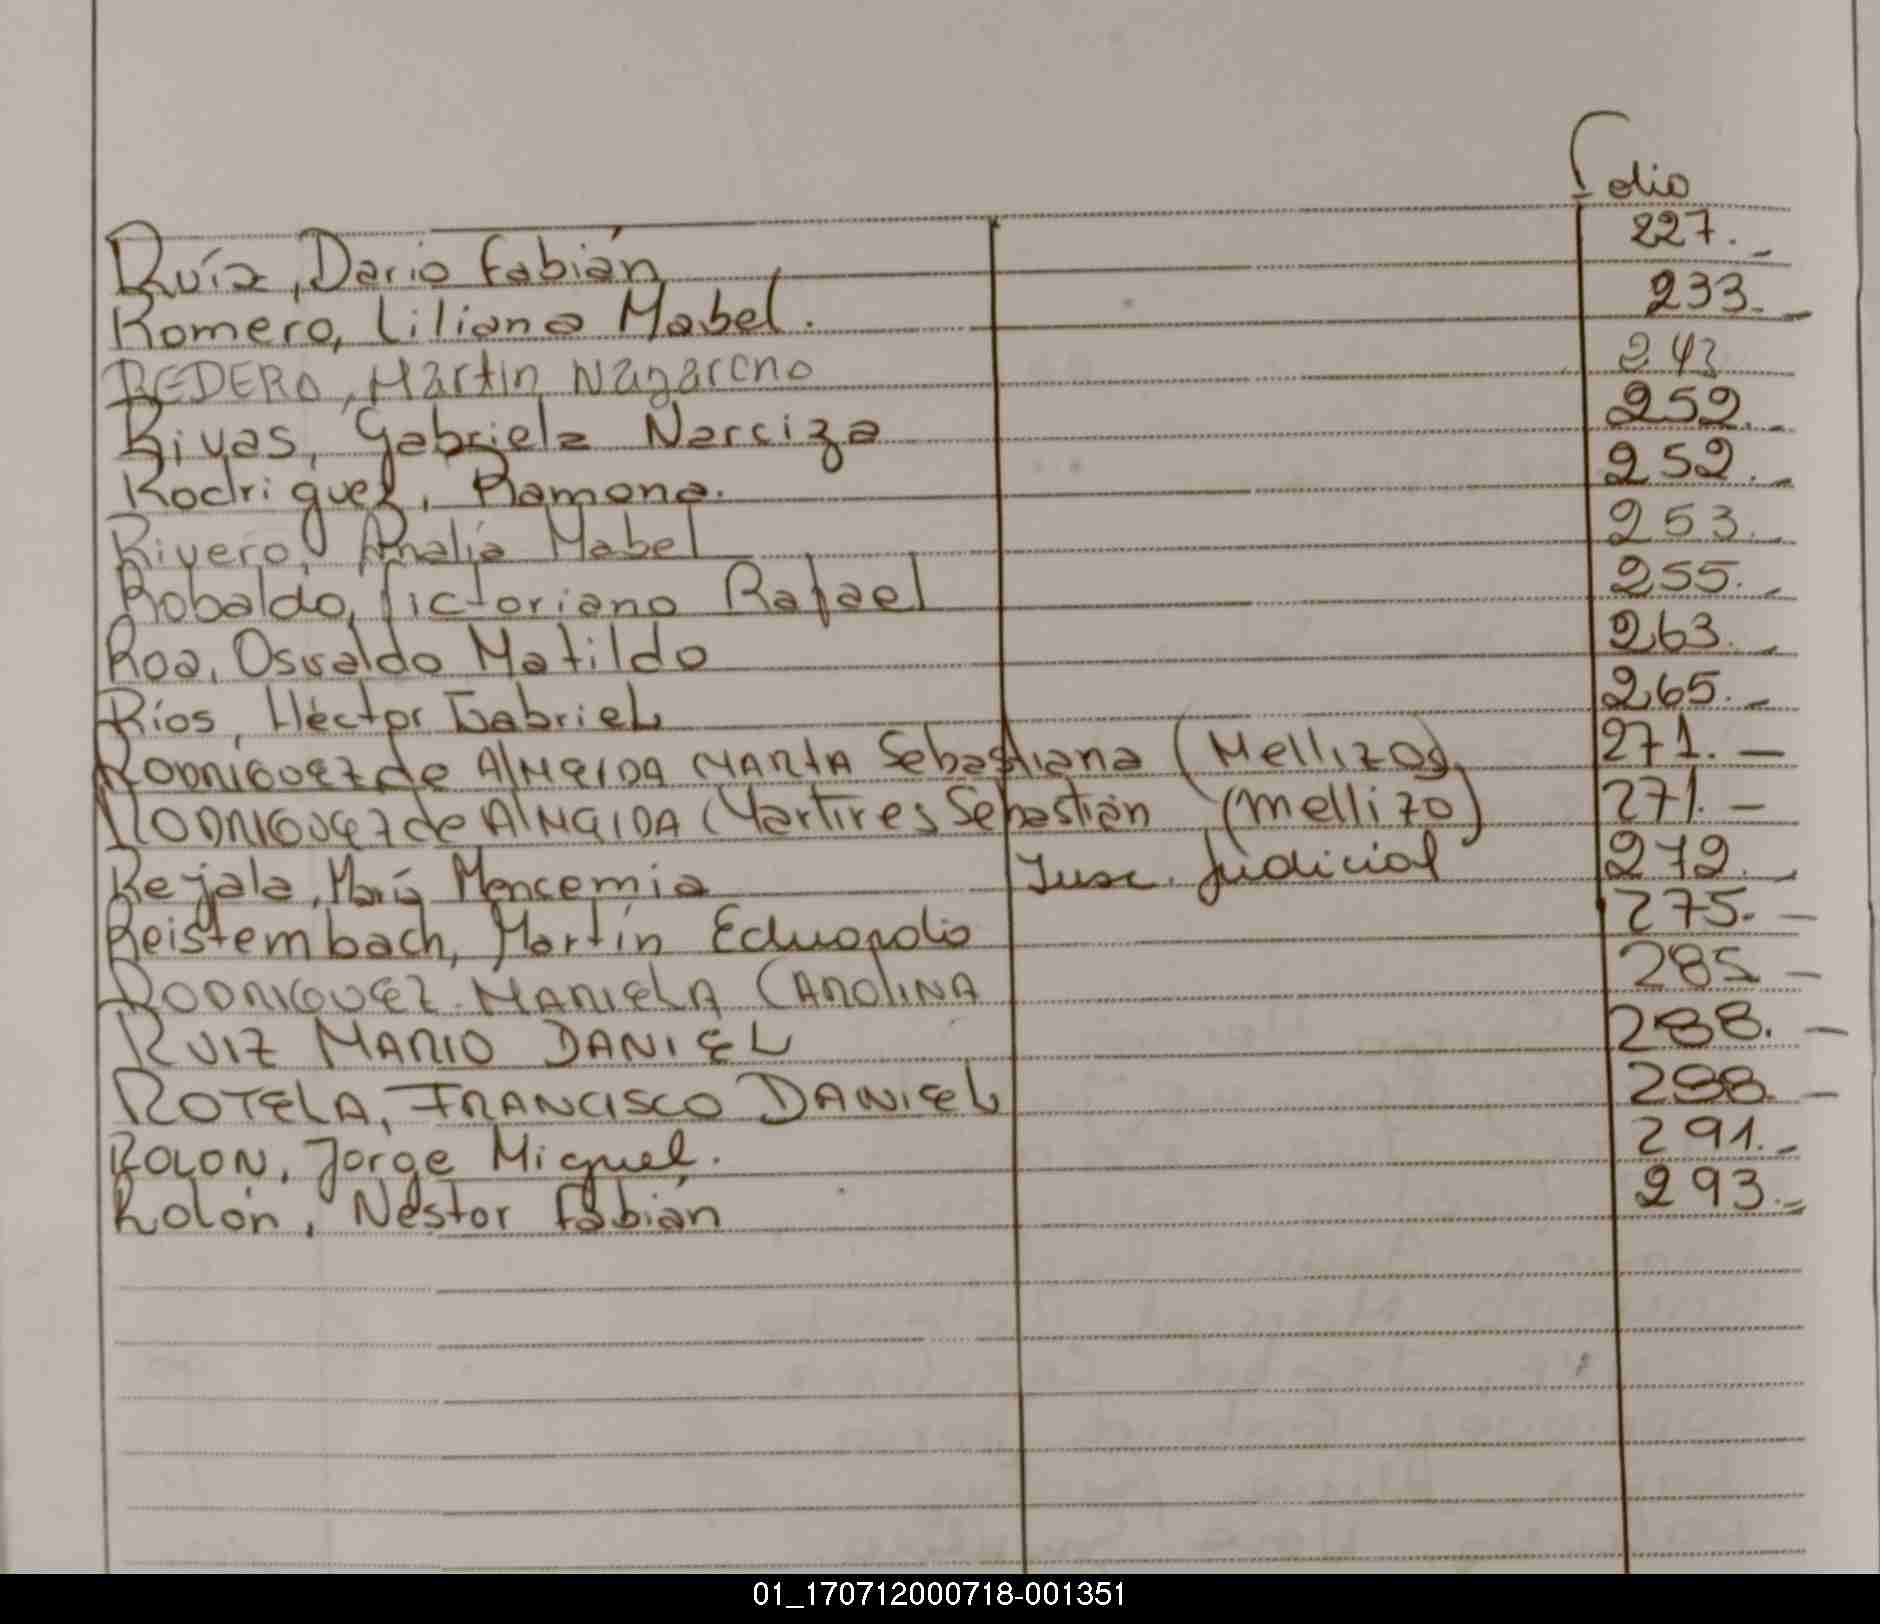 Folio
Ruíz, Dario Fabián 227.-
Romero, Liliana Mabel. 233.-
REDERO, Martin Nazareno 243
Rivas, Gabriela Narciza 252.-
Rodriguez, Ramona. 252.-
Rivero, Analía Mabel 253.-
Robaldo, Victoriano Rafael 255.-
Roa, Osvaldo Matildo 263.-
Ríos, Héctor Gabriel 265.-
RODRIGUEZ de AlMEIDA MARTA Sebastiana (Mellizos) 271.-
RODRIGUEZ de AlMEIDA Martires Sebastián (mellizo) 271.-
Rejala, María Mencemia Insc. Judicial 272.-
Reistembach, Martín Eduardo 275.-
RODRIGUEZ MARIELA CAROLINA 285-
RUIZ MARIO DANIEL 288.-
ROTELA, FRANCISCO DANIEL 288.-
ROLON, Jorge Miguel. 291.-
Rolón, Néstor Fabián 293.-
01_170712000718-001351